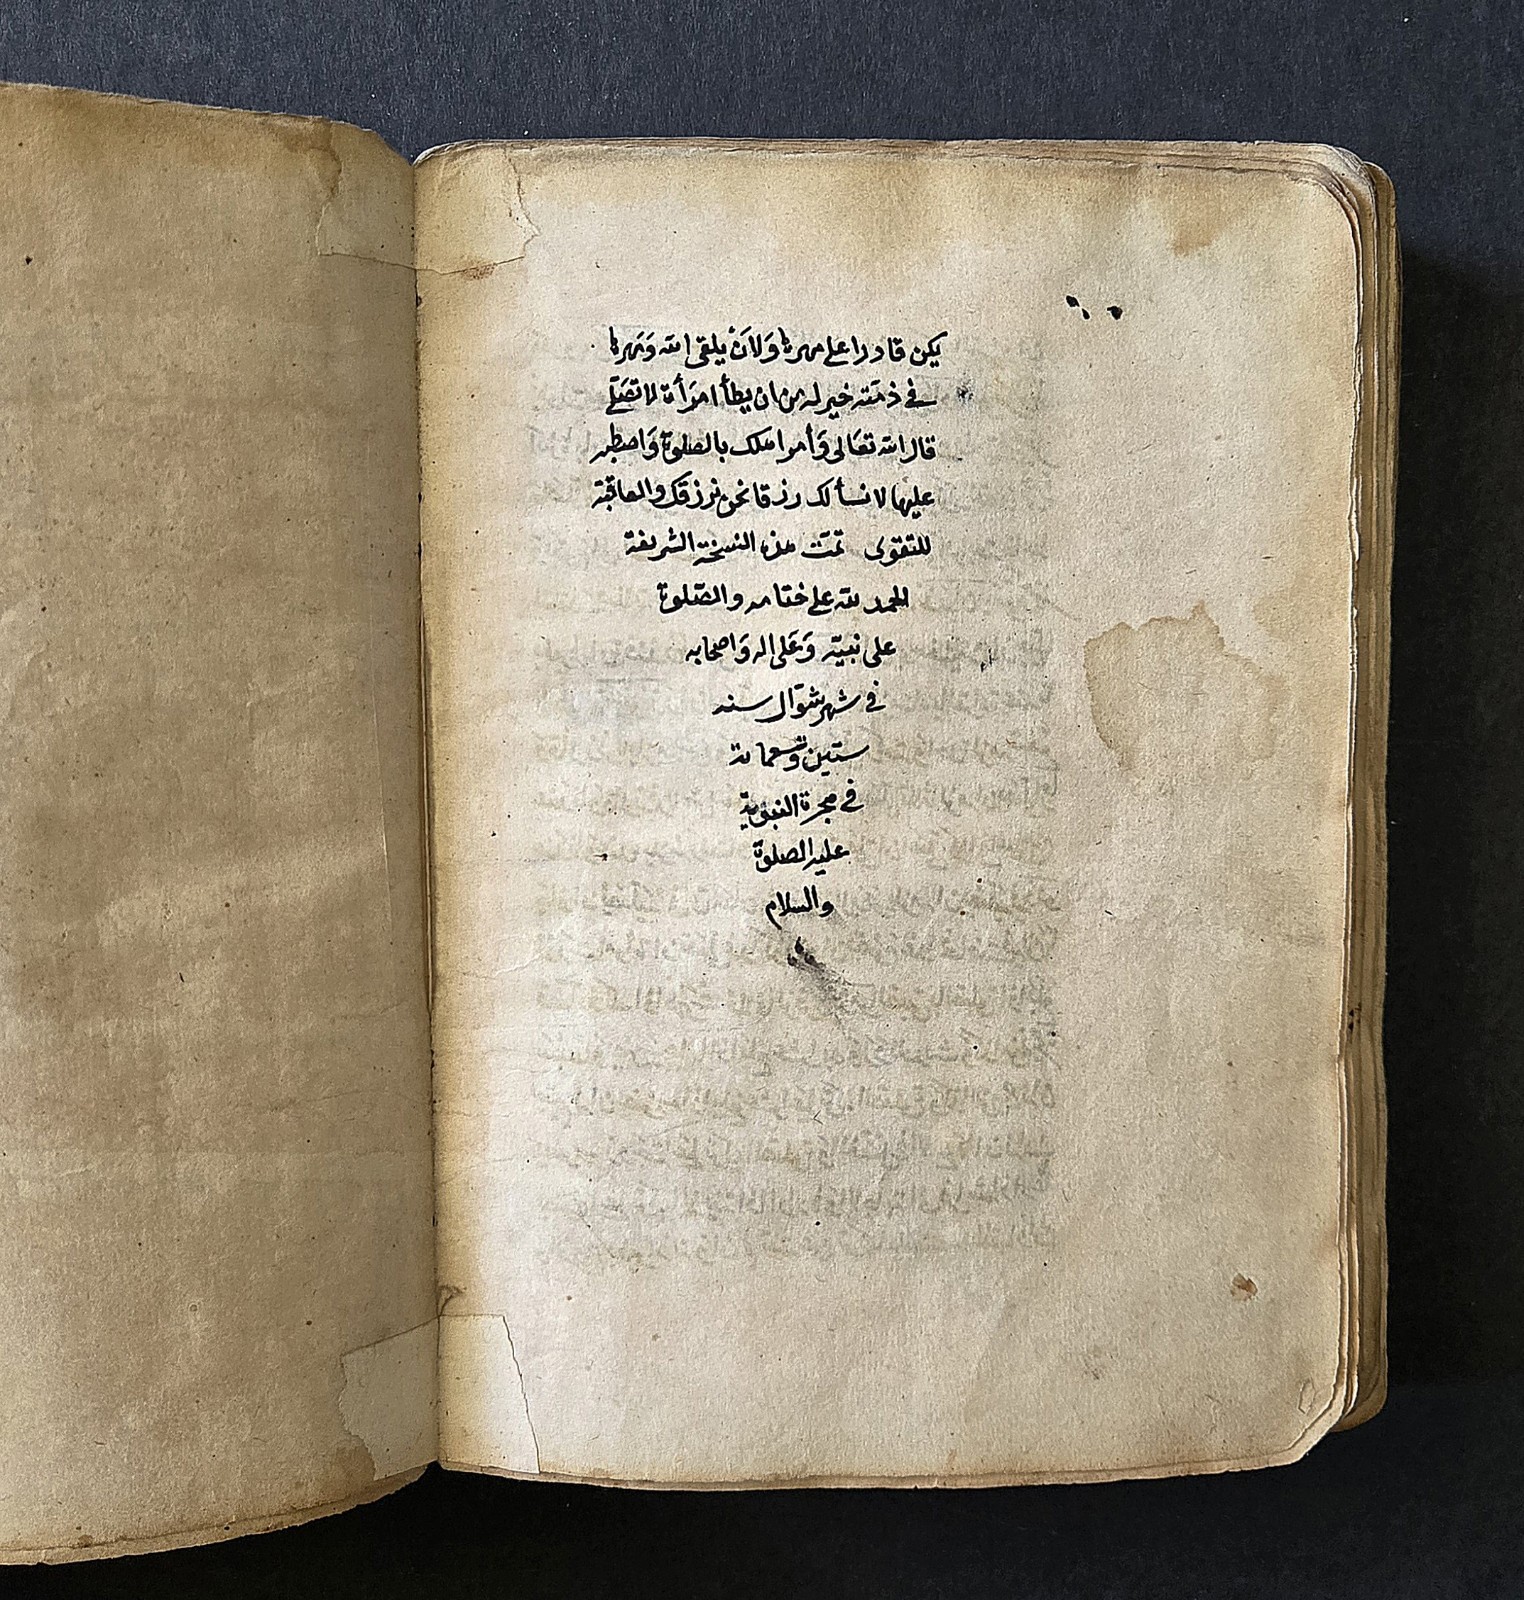 يكن قادرا على مهرها وَلاَنْ يلقى الله وَمَهرها
في ذمّته خير له من ان يطأ امرَأة لا تصَلّي
قال الله تعَالى وَأمر اهلك بالصلوة وَاصطبر
عليها لا نسألك رزقا نحن نرزقك والعاقبة
للتقوى تمّت هذه النسخة الشريفة
الحمد لله على ختامه والصّلوة
على نبيّه وَعَلى اله وَاصحابه
في شهر شوّال سنه
ستين وتسعمائة
في هجرة النبويّة
عليه الصلوة
والسلام